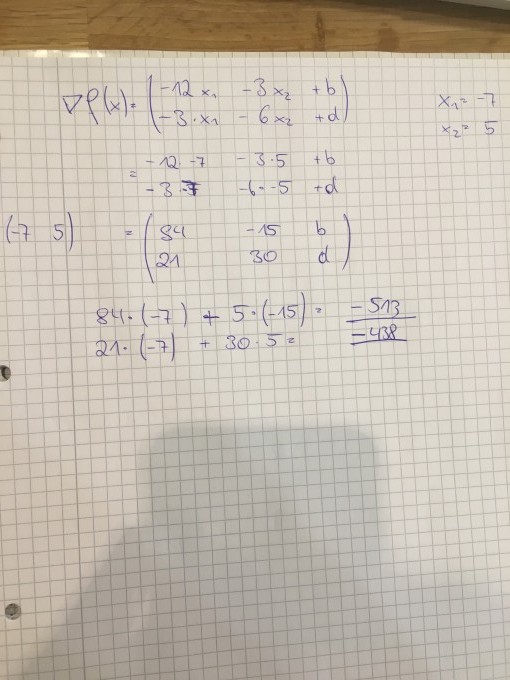 ∇f(x) = ( -12 x₁ - 3 x₂ + b
x₁ = -7
-3 · x₁ - 6 x₂ + d )
x₂ = 5
= -12 · -7 - 3 · 5 + b
-3 · -7 -6 · -5 + d
(-7 5) = ( 84 -15 b
21 30 d )
84 · (-7) + 5 · (-15) = -513
21 · (-7) + 30 · 5 = -438